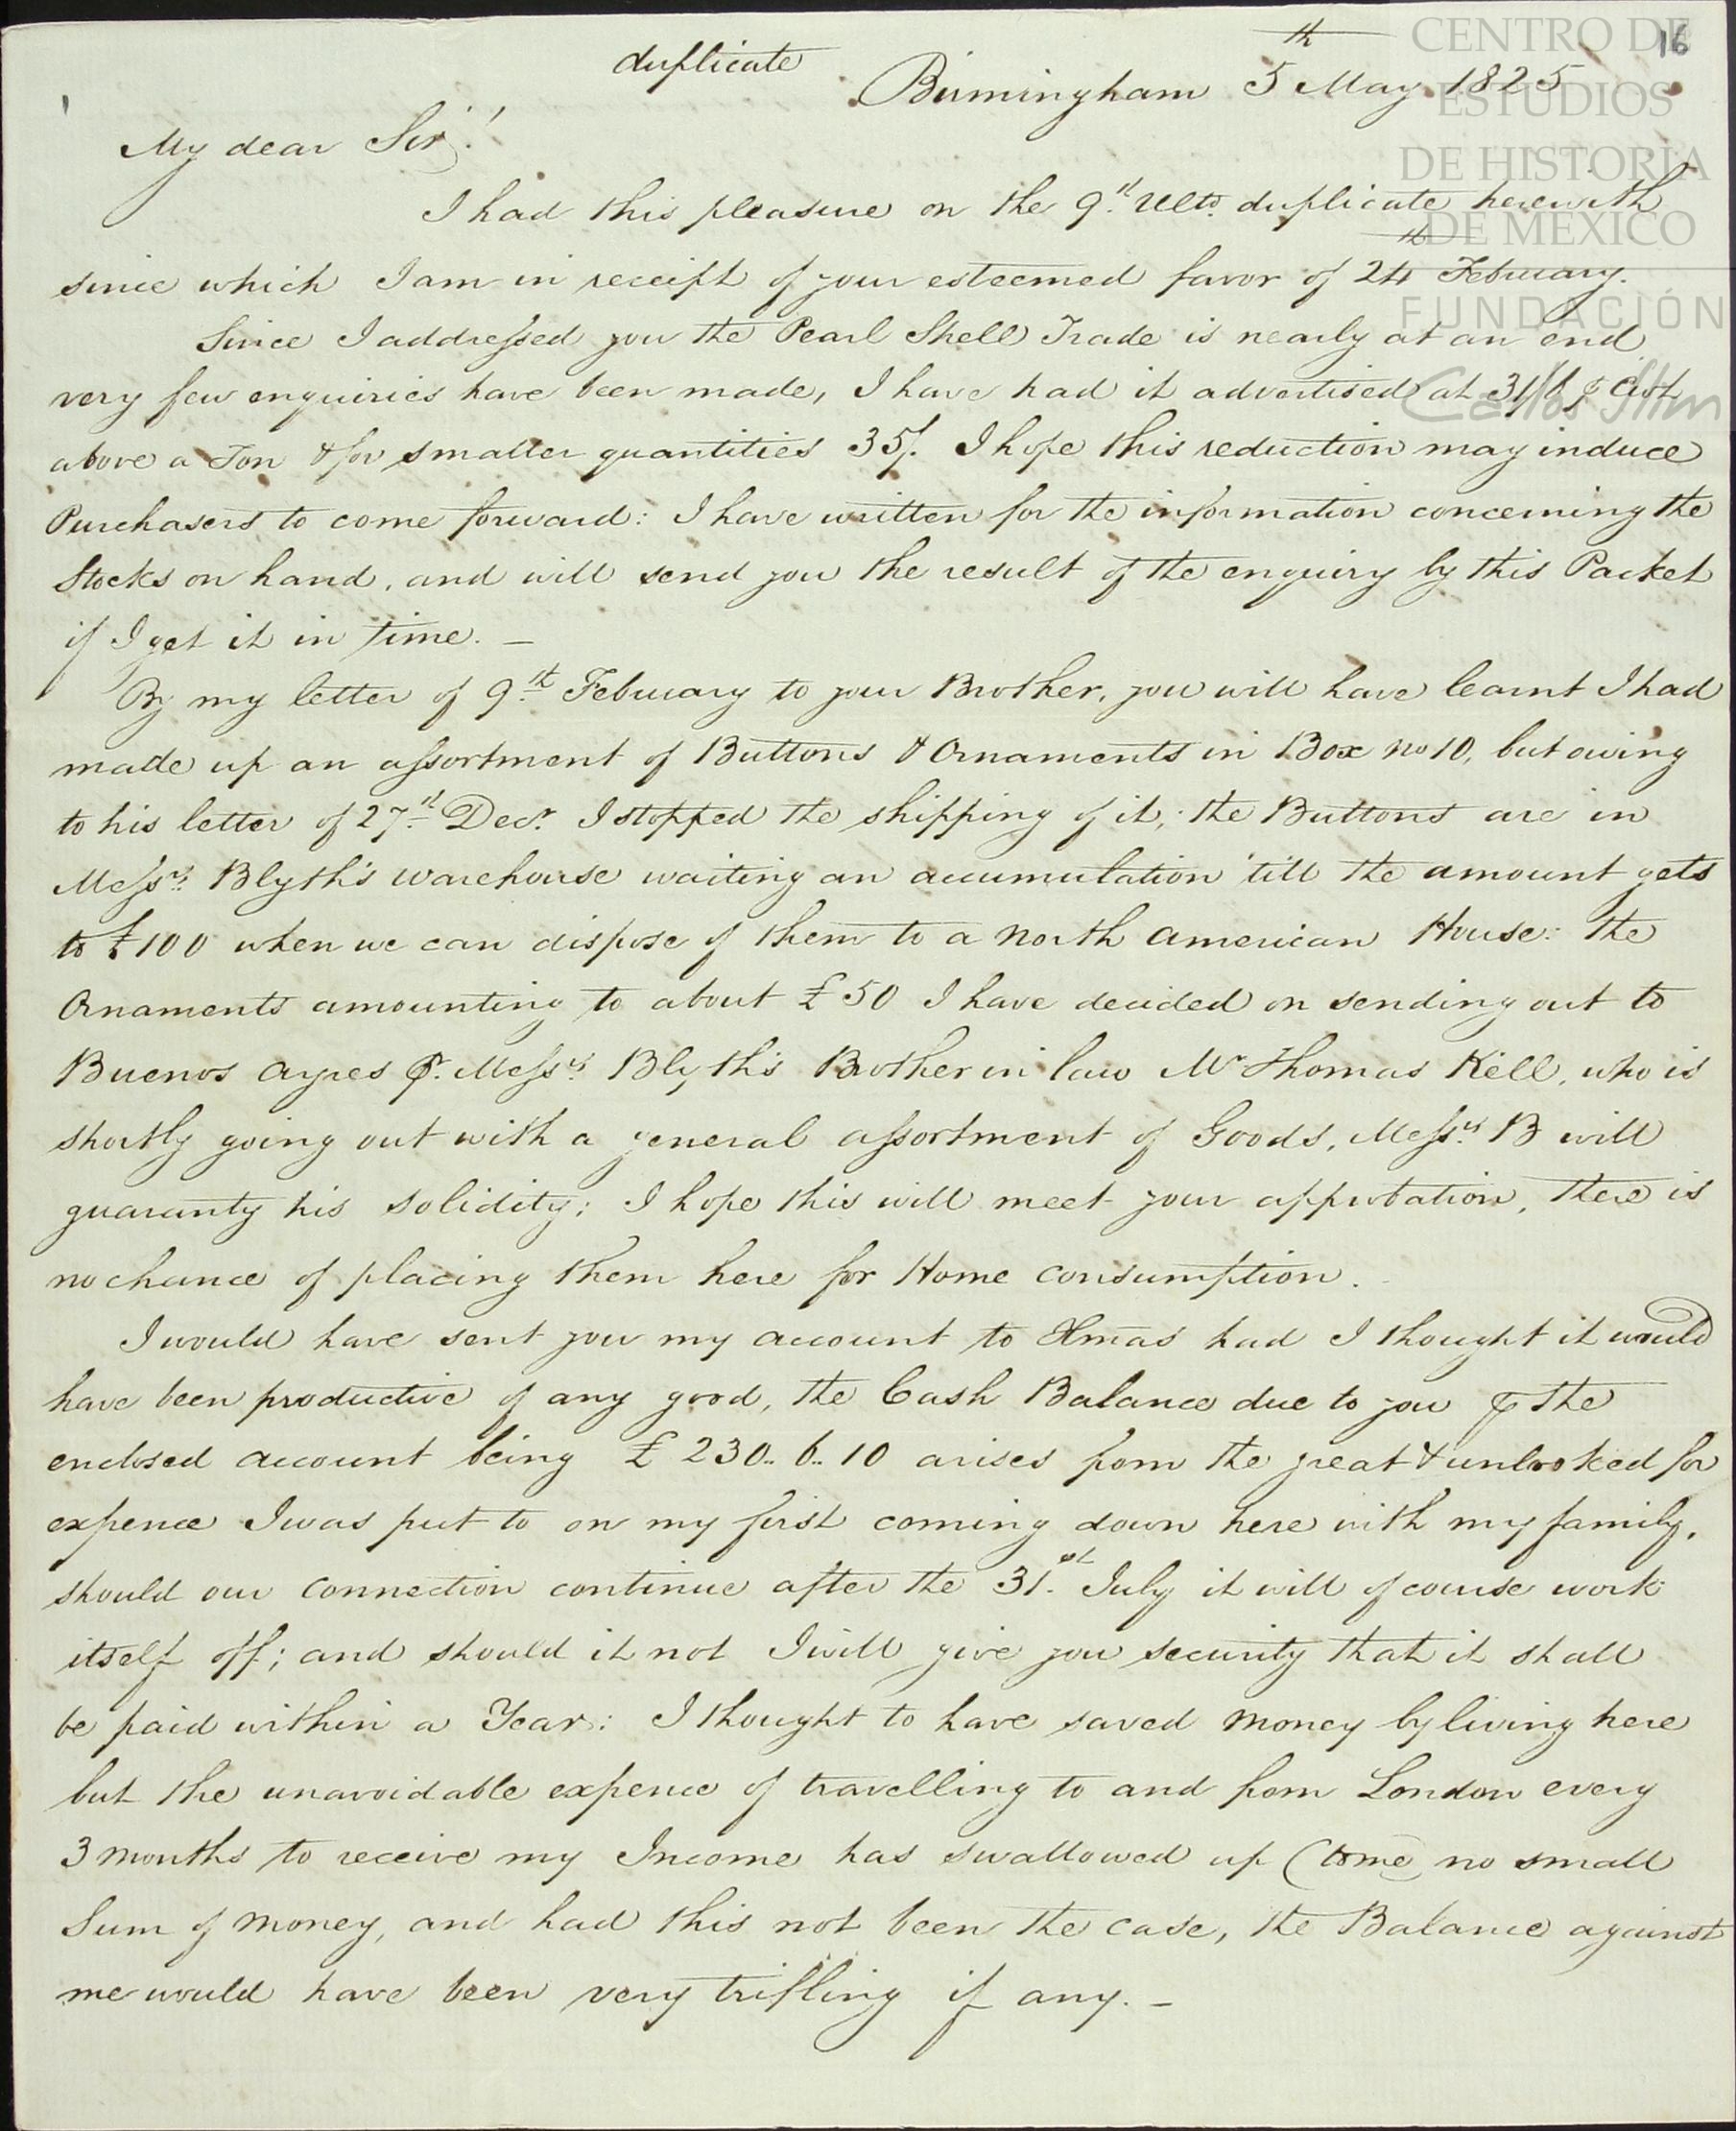 duplicate
16
Birmingham 5th May 1825
My dear Sir!
I had this pleasure on the 9th. Ulto. duplicate herewith
since which I am in receipt of your esteemed favor of 24th February.
Since I addressed you the Pearl Shell Trade is nearly at an end
very few enquiries have been made, I have had it advertised at 31/6 p Cwt
above a Ton & for smaller quantities 35/. I hope this reduction may induce
Purchasers to come forward: I have written for the information concerning the
Stocks on hand, and will send you the result of the enquiry by this Packet
if I get it in time. –
By my letter of 9th February to your Brother, you will have learnt I had
made up an assortment of Buttons & Ornaments in Box no 10, but owing
to his letter of 27th Decr. I stopped the shipping of it; the Buttons are in
Messrs. Blyth's warehouse waiting an accumulation 'till the amount gets
to £100 when we can dispose of them to a North American House: the
Ornaments amounting to about £50 I have decided on sending out to
Buenos Ayres pr. Messrs. Blyth's Brother in law Mr Thomas Kell, who is
shortly going out with a general assortment of Goods, Messrs. B will
guaranty his solidity; I hope this will meet your approbation, there is
no chance of placing them here for Home consumption.
I would have sent you my account to Xmas had I thought it would
have been productive of any good, the Cash Balance due to you p the
enclosed account being £230..6..10 arises from the great & unlooked for
expence I was put to on my first coming down here with my family,
should our connection continue after the 31st. July it will of course work
itself off; and should it not I will give you security that it shall
be paid within a Year: I thought to have saved money by living here
but the unavoidable expence of travelling to and from London every
3 months to receive my Income has swallowed up (to me) no small
Sum of money, and had this not been the case, the Balance against
me would have been very trifling if any. –
CENTRO DE
ESTUDIOS
DE HISTORIA
DE MEXICO
FUNDACIÓN
Carlos Slim